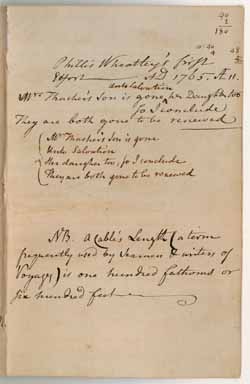 90
2
180
Phillis Wheatley's first
Effort — AD 1765. Æt 11.
unto Salvation
Mrs Thacher's Son is gone her Daughter too
so I conclude
They are both gone to be renewed
Mrs Thacher's Son is gone
Unto Salvation
Her daughter too, so I conclude
They are both gone to be renewed
NB. A Cable's Length (a term
frequently used by Seamen & writers of
Voyages) is one hundred fathoms or
six hundred feet